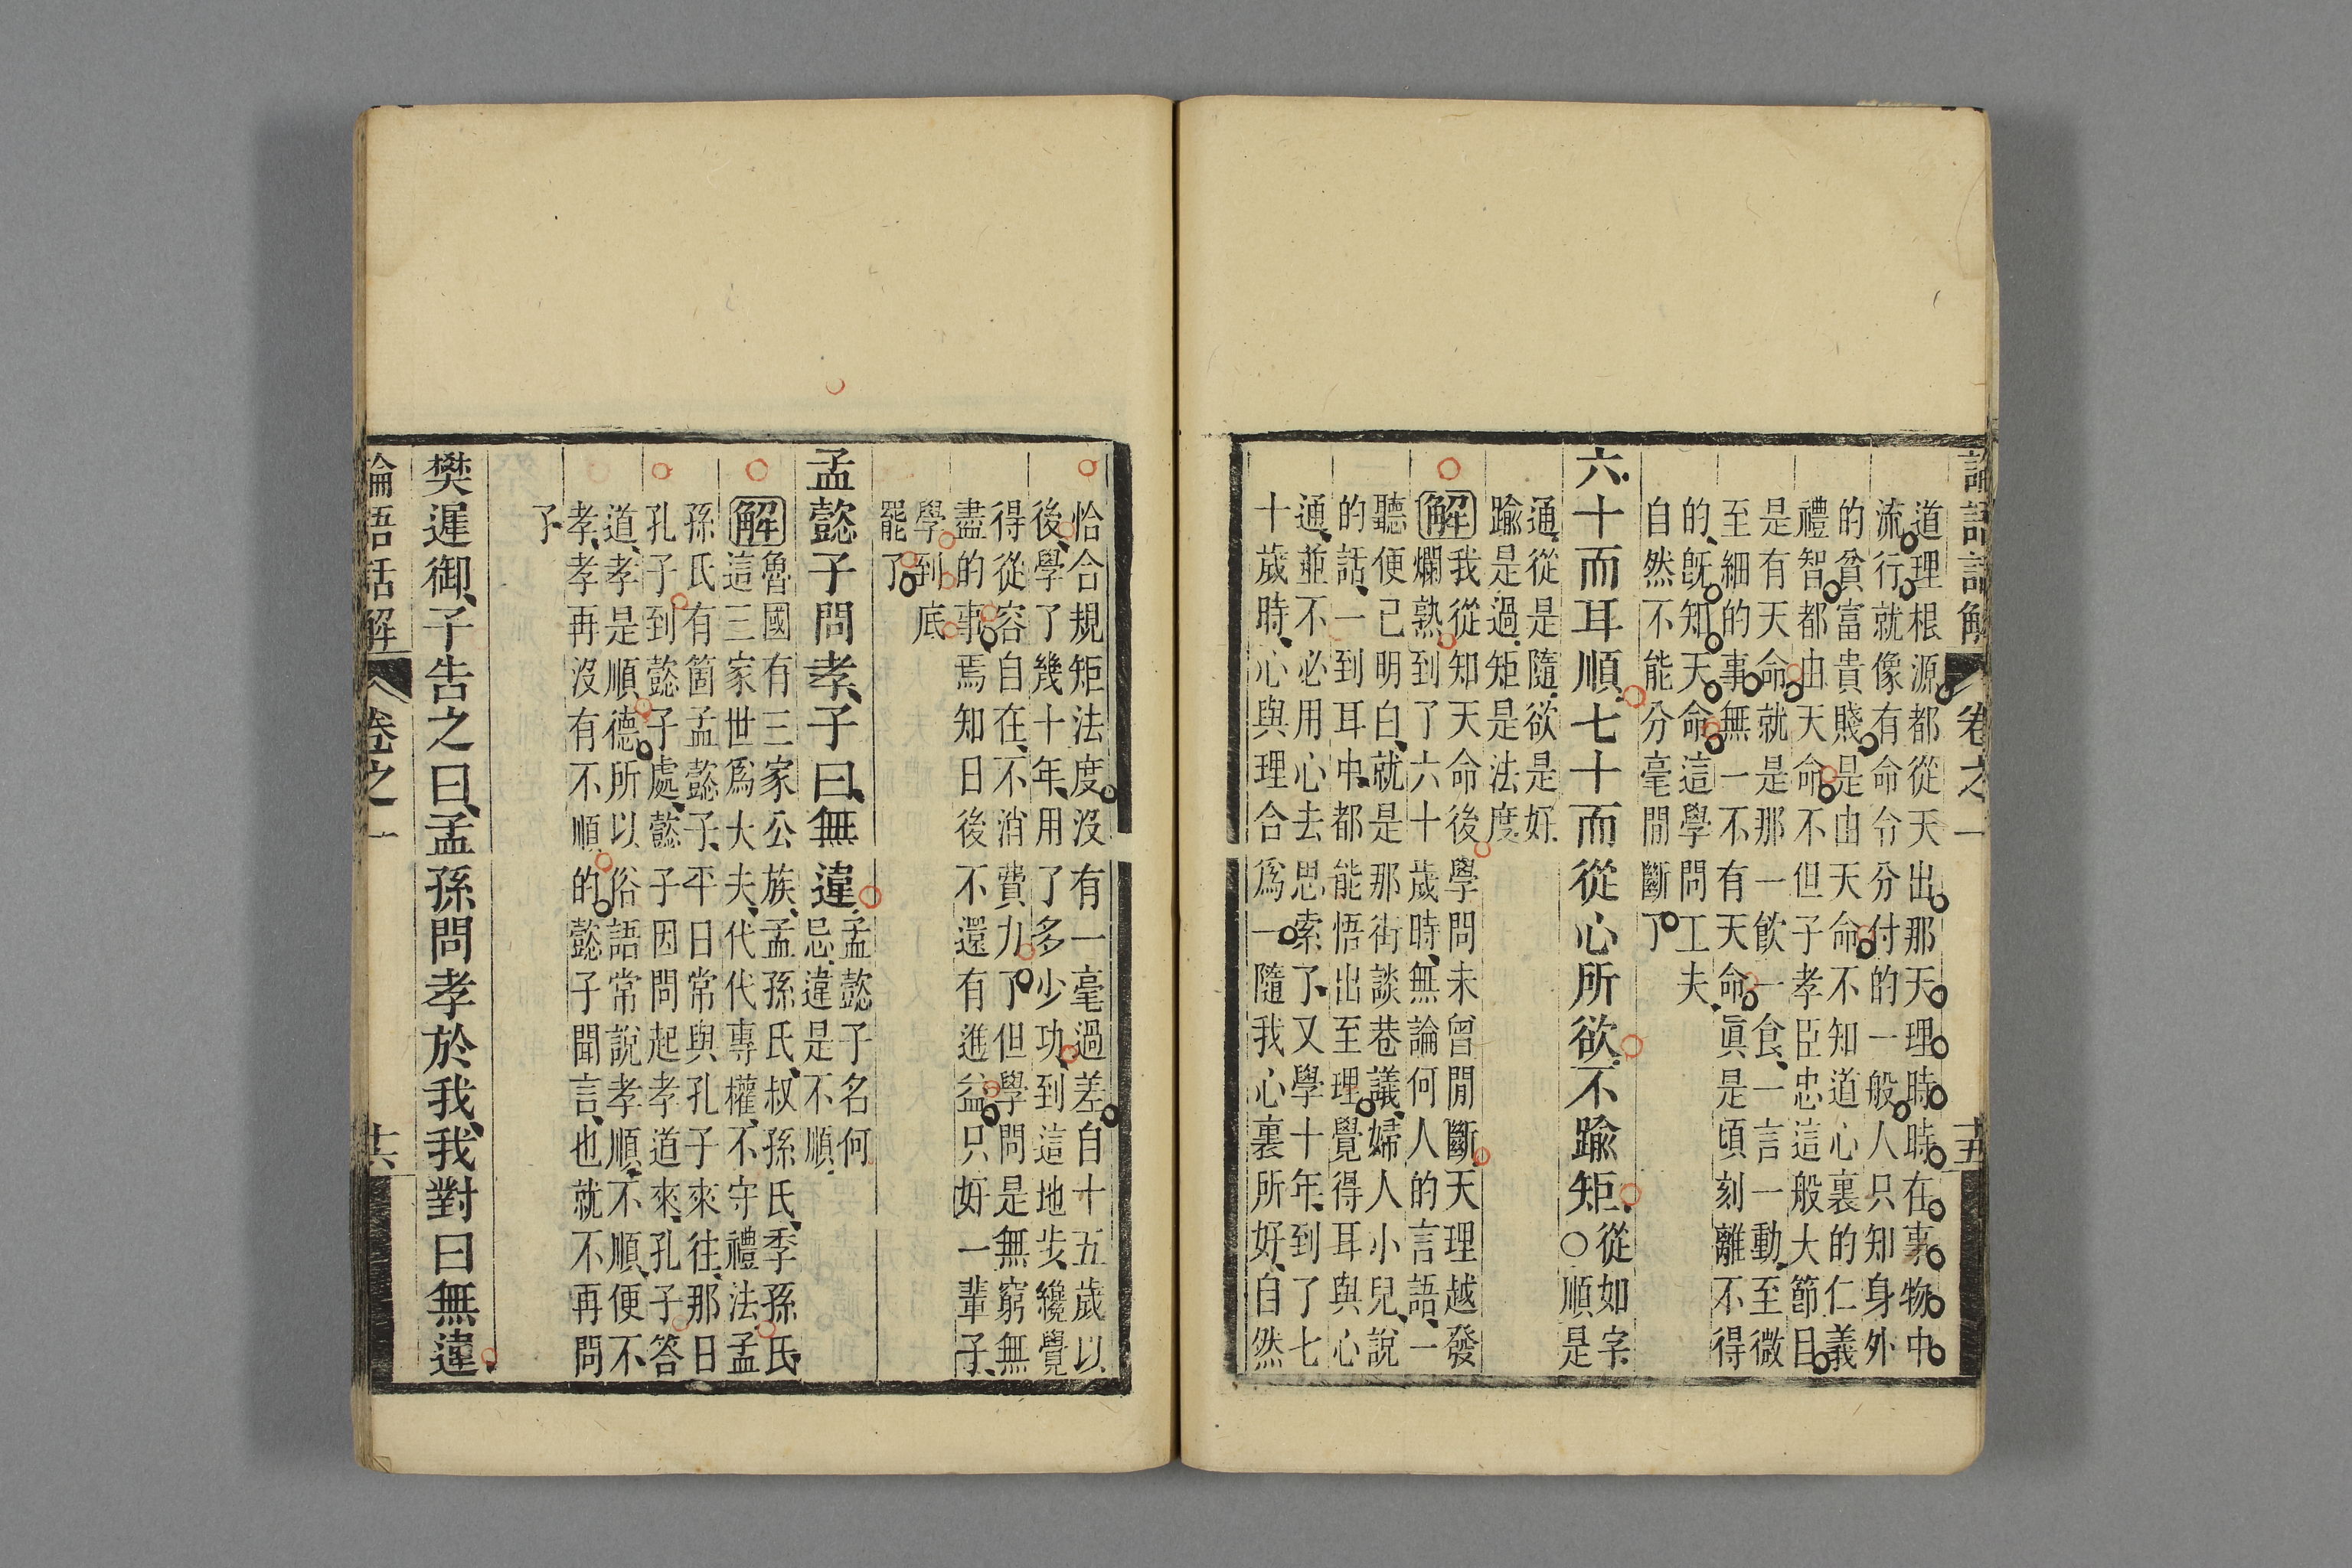 論語話解 卷之一 十五
道理根源都從天出那天理時時在事物中
流行就像有命令分付的一般人只知身外
的貧富貴賤是由天命不知道心裏的仁義
禮智都由天命不但子孝臣忠這般大節目
是有天命就是那一飮一食、一言一動、至微
至細的事無一不有天命、眞是頃刻離不得
的、旣知天命這學問工夫
自然不能分毫閒斷了
六十而耳順、七十而從心所欲、不踰矩、從如字、
○順是
通、從是隨、欲是好、
踰是過、矩是法度
解我從知天命後學問未曾閒斷天理越發
爛熟到了六十歲時、無論何人的言語、一
聽便已明白、就是那街談巷議、婦人小兒、說
的話、一到耳中、都能悟出至理覺得耳與心
通、並不必用心去思索了、又學十年、到了七
十歲時、心與理合爲一隨我心裏所好、自然
恰合規矩法度沒有一毫過差自十五歲以
後、學了幾十年、用了多少功、到這地步、纔覺
得從容自在、不消費力了但學問是無窮無
盡的事焉知日後不還有進益只好一輩子、
學到底
罷了
孟懿子問孝、子曰、無違、孟懿子名何
忌、違是不順、
解魯國有三家公族、孟孫氏、叔孫氏、季孫氏、
這三家世爲大夫、代代專權、不守禮法、孟
孫氏有箇孟懿子、平日常與孔子來往、那日
孔子到懿子處、懿子因問起孝道來、孔子答
道、孝是順德所以俗語常說孝順、不順、便不
孝、孝再沒有不順的懿子聞言、也就不再問
了、
樊遲御、子告之曰、孟孫問孝於我、我對曰無違、
論語話解 卷之一 十六